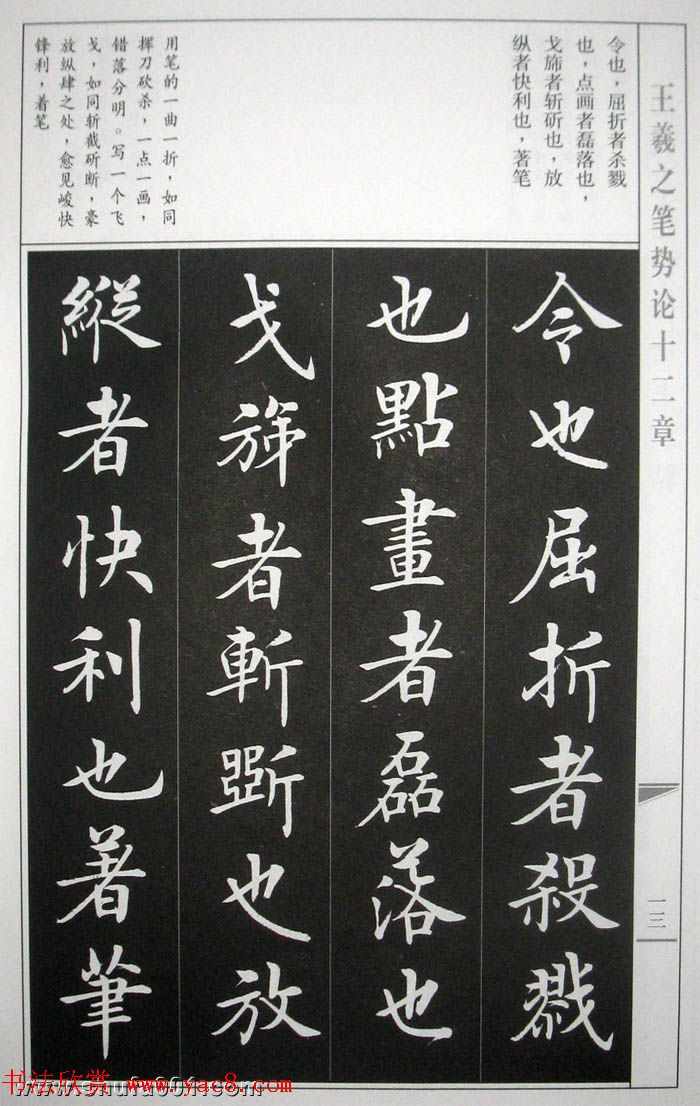 王羲之笔势论十二章
一三
令也，屈折者杀戮
也，点画者磊落也，
戈旆者斩斫也，放
纵者快利也，著笔
用笔的一曲一折，如同
挥刀砍杀，一点一画，
错落分明。写一个飞
戈，如同斩截斫断，豪
放纵肆之处，愈见峻快
锋利，着笔
令也屈折者殺戮
也點畫者磊落也
戈旆者斬斵也放
縱者快利也著筆
书法欣赏 www.yac8.com